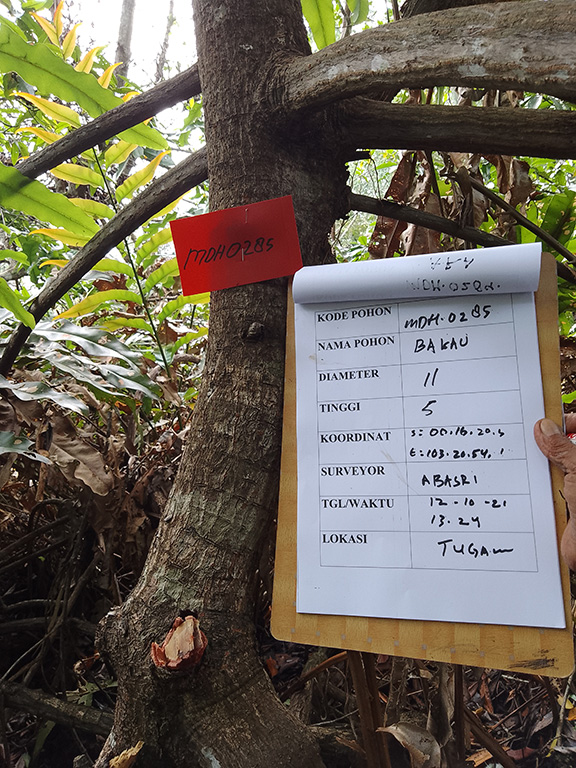 MDH0285
KODE POHON MDH.0285
NAMA POHON BAKAU
DIAMETER 11
TINGGI 5
KOORDINAT S: 00.16.20.5
E: 103.20.54.1
SURVEYOR ABASRI
TGL/WAKTU 12-10-21
13.24
LOKASI